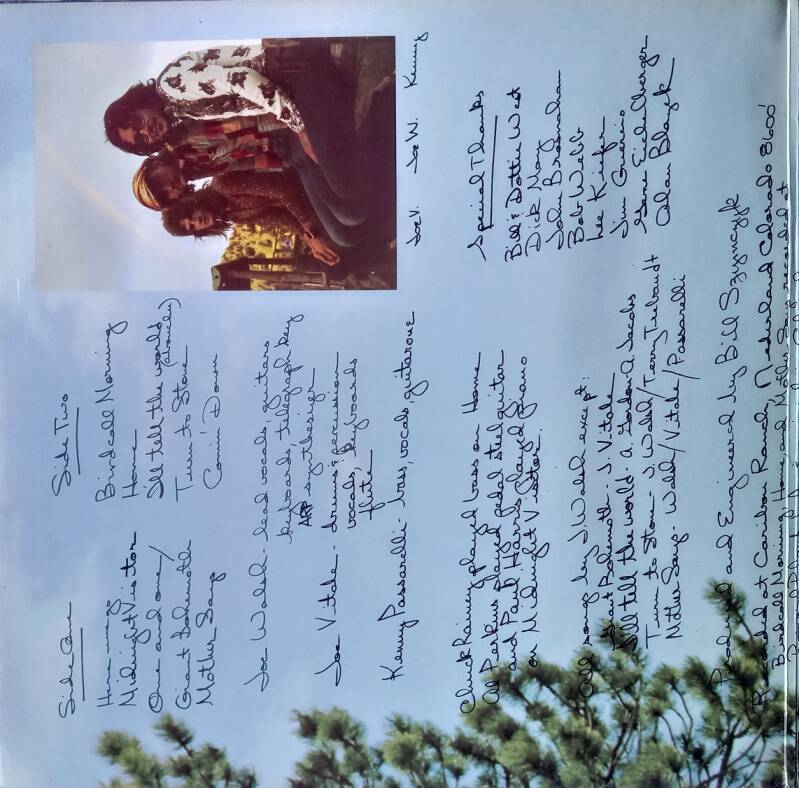 Side One
Homesong
Midnight Visitor
One and one/
Giant Bohemoth
Mother Says
Side Two
Birdcall Morning
Home
I'll tell the world
(about you)
Turn to Stone
Comin' Down
Joe V. Joe W. Kenny
Joe Walsh - lead vocals, guitars
keyboards, telegraph key
ARP synthesizer
Joe Vitale - drums & percussion
vocals, keyboards
flute
Kenny Passarelli - bass, vocals, guitarone
Chuck Rainey played bass on Home
Al Perkins played pedal steel guitar
and Paul Harris played piano
on Midnight Visitor.
Special Thanks
Bill & Dottie West
Dick May
John
Bob Webb
Lee Kiefer
Jim Guercio
Gene Eichelberger
Alan Blazek
All songs by J. Walsh except:
Giant Bohemoth - J. Vitale
I'll tell the world - A. Gordon-A. Jacobs
Turn to Stone - J. Walsh/Terry Trebandt
Mother Says - Walsh/Vitale/Passarelli
Produced and Engineered by Bill Szymczyk
Recorded at Caribou Ranch, Nederland Colorado 8600'
Birdcall Morning, Home, and Mother Says recorded at